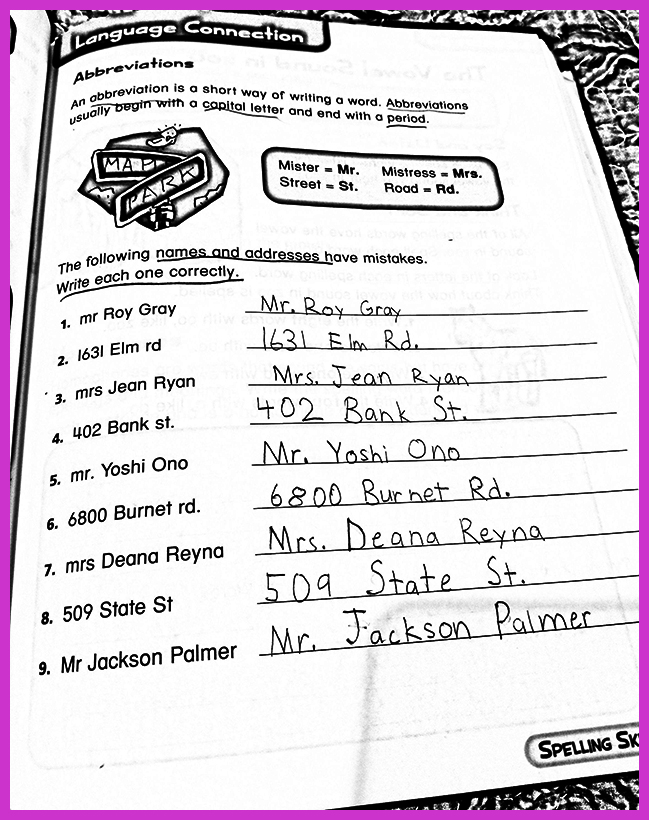 Language Connection
Abbreviations
An abbreviation is a short way of writing a word. Abbreviations
usually begin with a capital letter and end with a period.
MAPLE
PARK
Mister = Mr. Mistress = Mrs.
Street = St. Road = Rd.
The following names and addresses have mistakes.
Write each one correctly.
1. mr Roy Gray Mr. Roy Gray
2. 1631 Elm rd 1631 Elm Rd.
3. mrs Jean Ryan Mrs. Jean Ryan
4. 402 Bank st. 402 Bank St.
5. mr. Yoshi Ono Mr. Yoshi Ono
6. 6800 Burnet rd. 6800 Burnet Rd.
7. mrs Deana Reyna Mrs. Deana Reyna
8. 509 State St 509 State St.
9. Mr Jackson Palmer Mr. Jackson Palmer
SPELLING SK